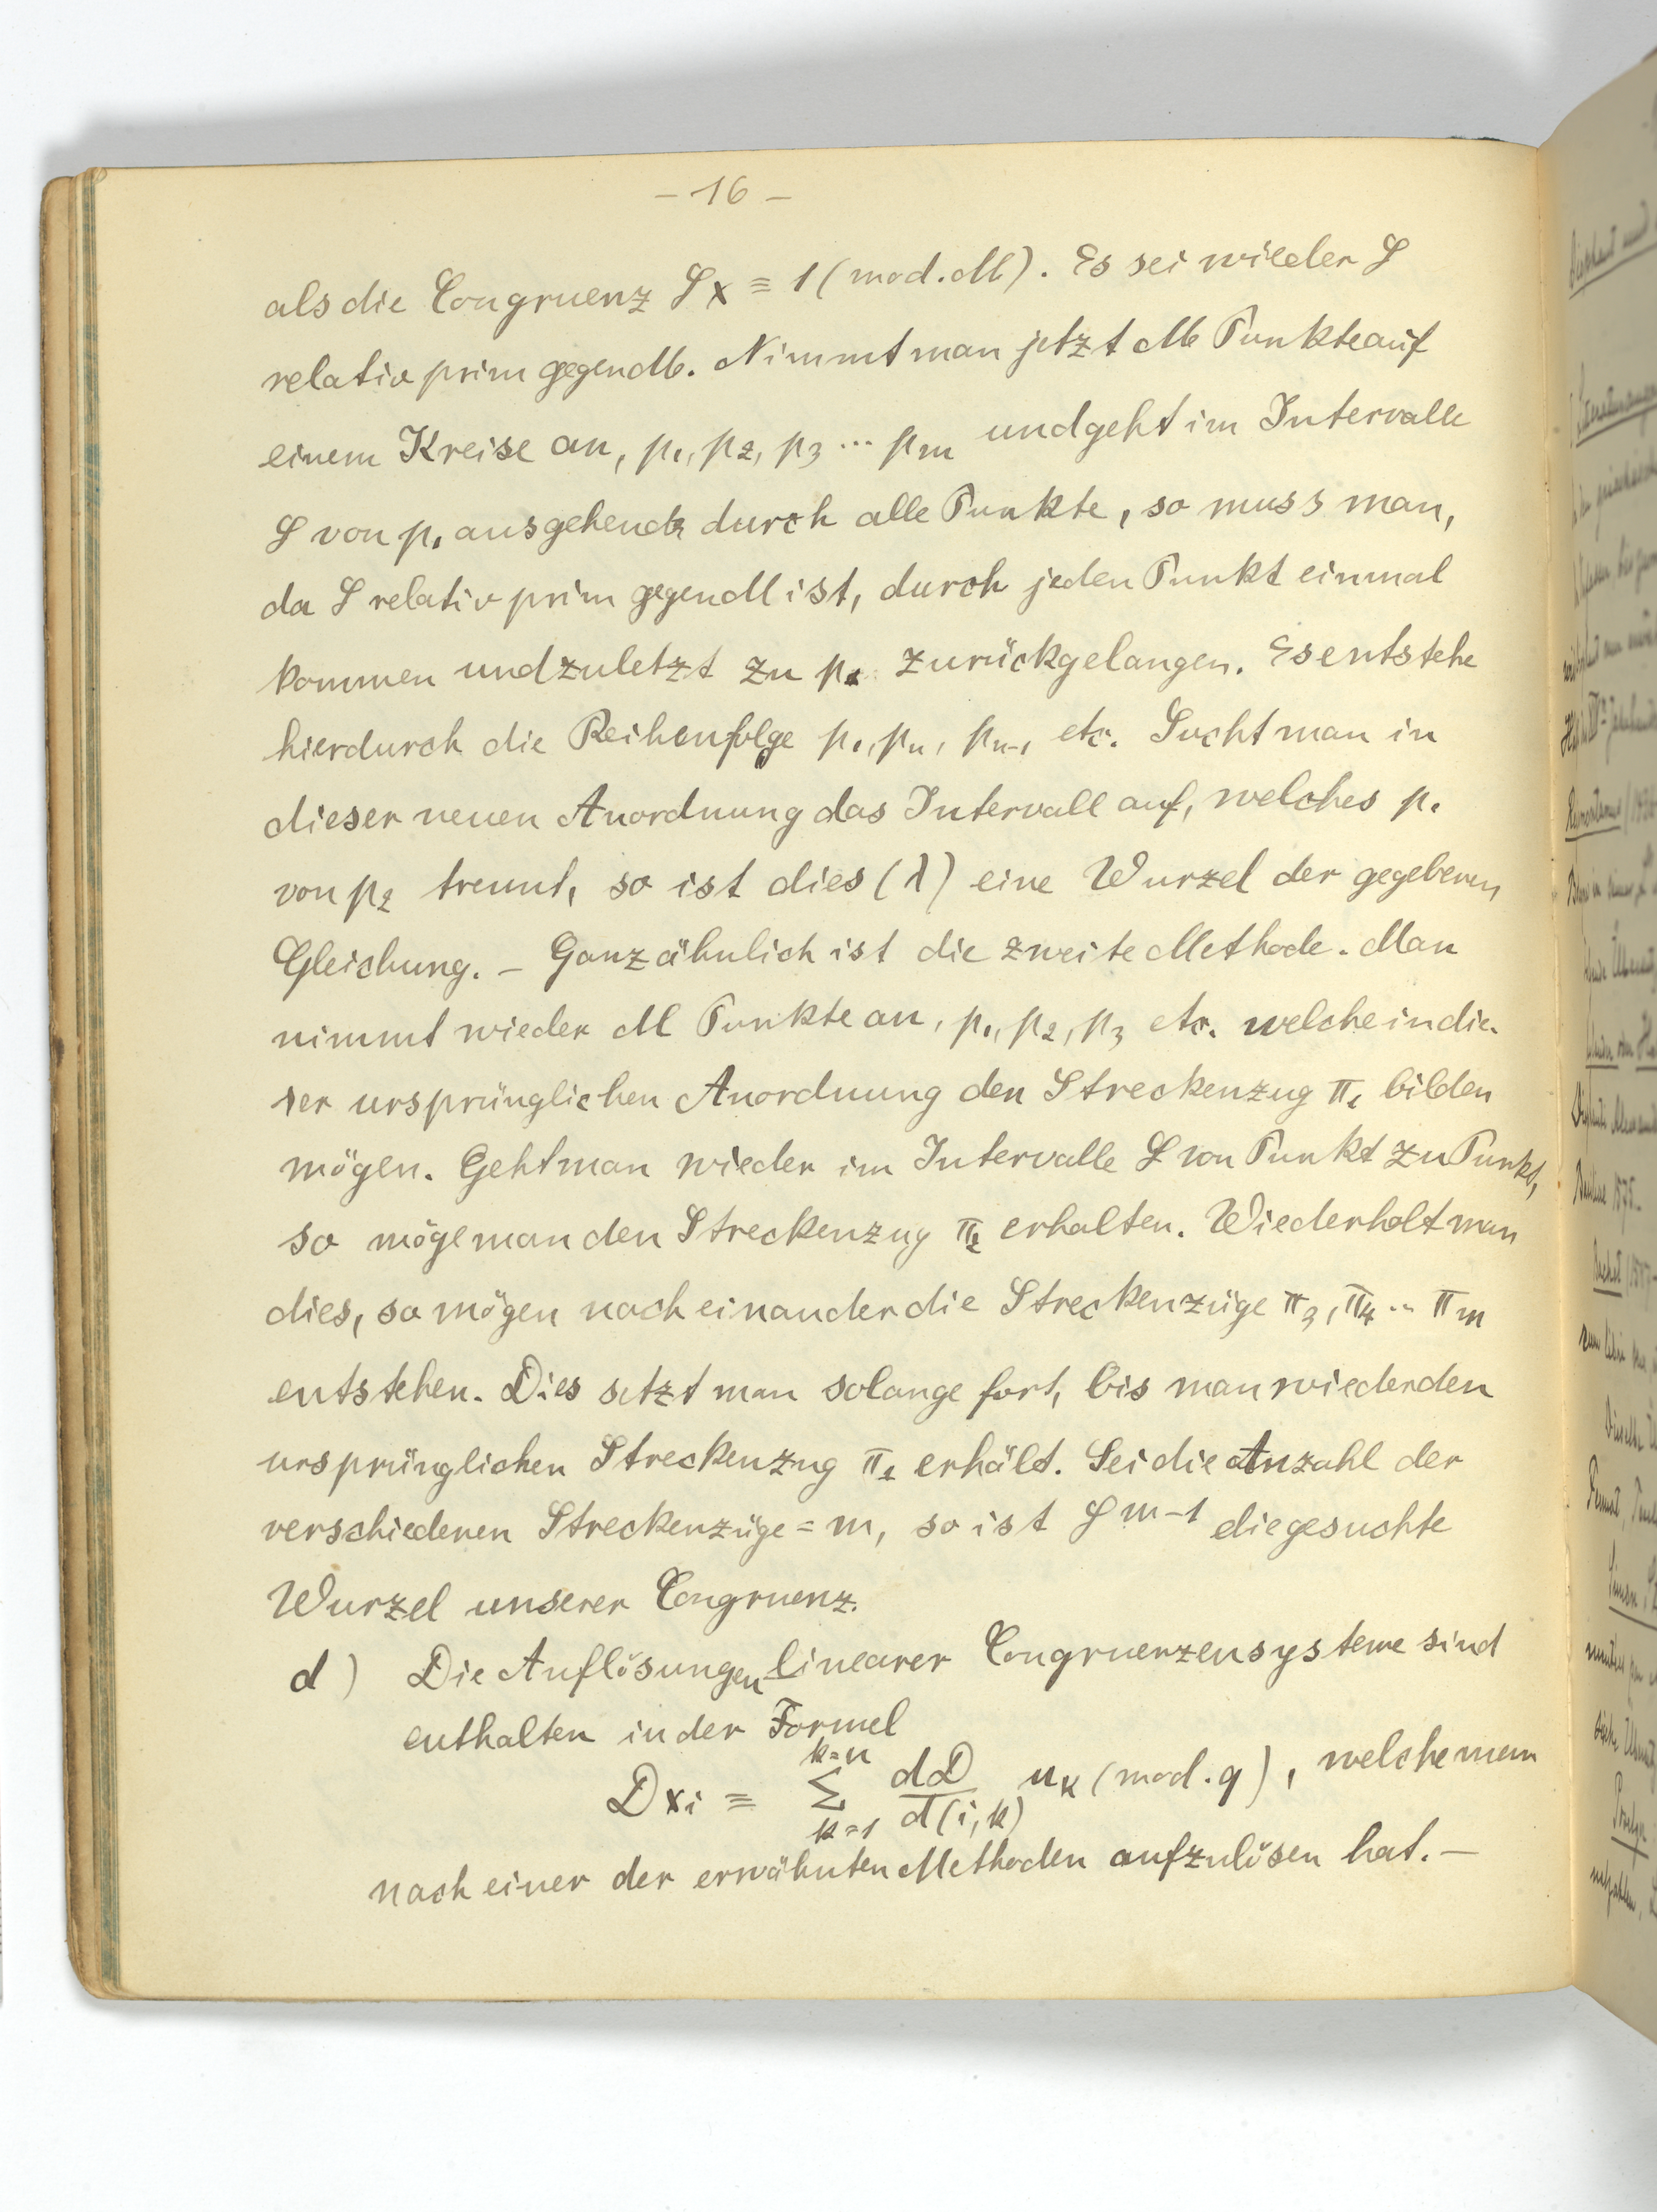 - 16 -
als die Congruenz Sx ≡ 1 (mod. M). Es sei wieder S
relativ prim gegen M. Nimmt man jetzt M Punkte auf
einem Kreise an, p₁, p₂, p₃ ... pₘ und geht im Intervalle
S von p₁ ausgehend durch alle Punkte, so muss man,
da S relativ prim gegen M ist, durch jeden Punkt einmal
kommen und zuletzt zu p₁ zurückgelangen. Es entstehe
hierdurch die Reihenfolge p₁, pₙ, pₙ₋₁ etc. Sucht man in
dieser neuen Anordnung das Intervall auf, welches p₁
von p₂ trennt, so ist dies (λ) eine Wurzel der gegebenen
Gleichung. – Ganz ähnlich ist die zweite Methode. Man
nimmt wieder M Punkte an, p₁, p₂, p₃ etc. welche in die-
ser ursprünglichen Anordnung den Streckenzug π₁ bilden
mögen. Geht man wieder im Intervalle S von Punkt zu Punkt,
so möge man den Streckenzug π₂ erhalten. Wiederholt man
dies, so mögen nach einander die Streckenzüge π₃, π₄ .. πₘ
entstehen. Dies setzt man solange fort, bis man wieder den
ursprünglichen Streckenzug π₁ erhält. Sei die Anzahl der
verschiedenen Streckenzüge = m, so ist S^{m-1} die gesuchte
Wurzel unserer Congruenz.
d) Die Auflösungen linearer Congruenzensysteme sind
enthalten in der Formel
Dxᵢ ≡ \sum_{k=1}^{k=n} \frac{dD}{d(i,k)} uₖ (mod. q), welche man
nach einer der erwähnten Methoden aufzulösen hat. –